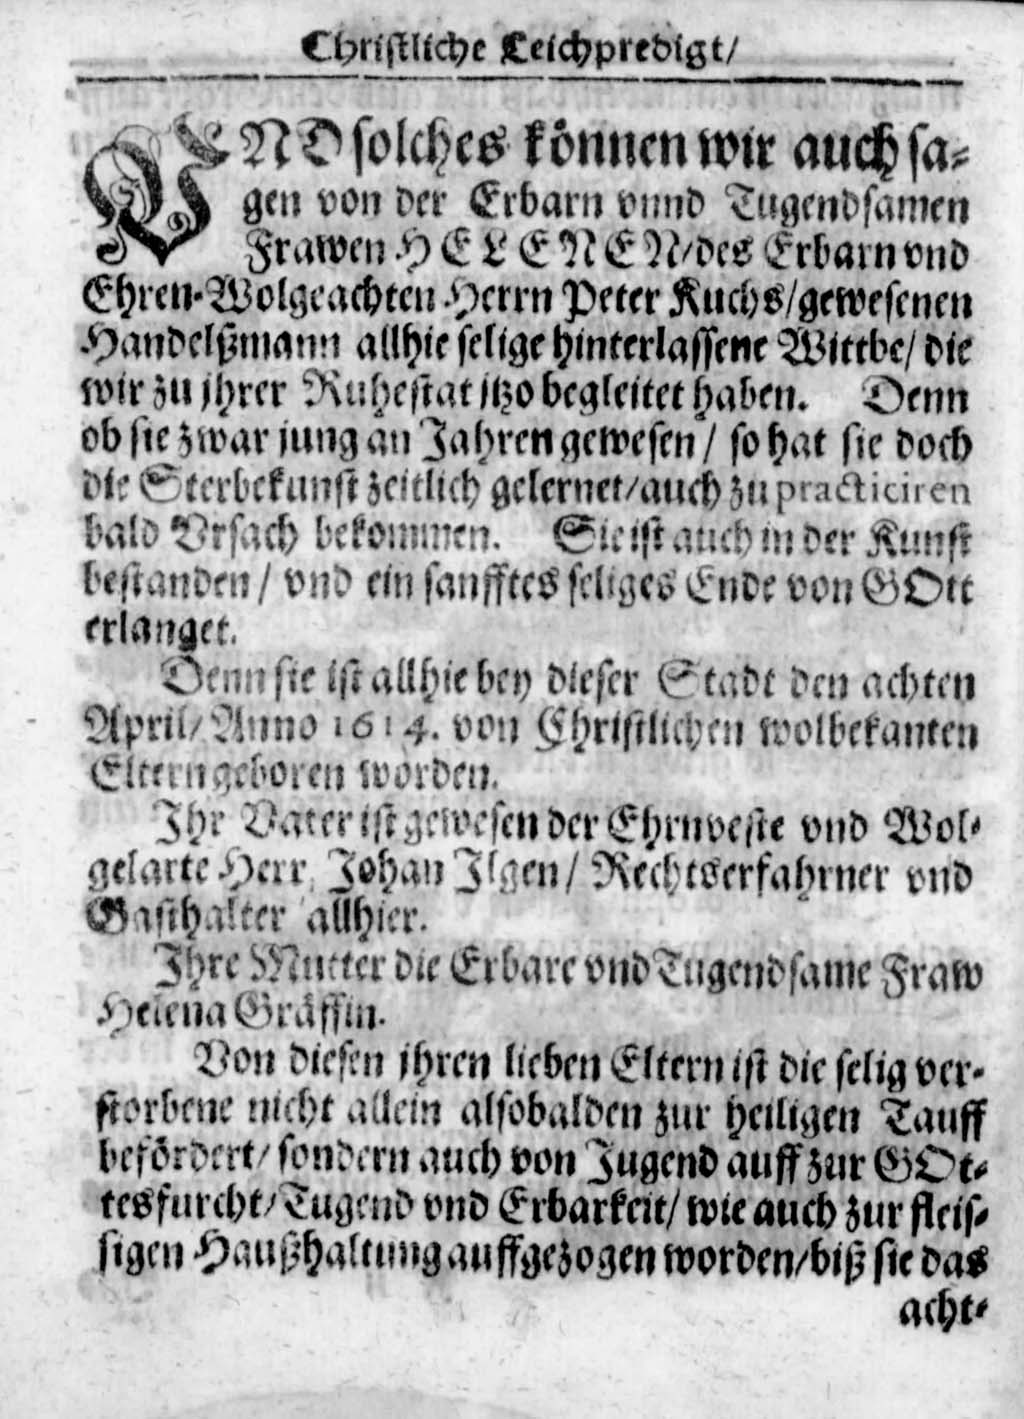 Christliche Leichpredigt/
VND solches können wir auch sa-
gen von der Erbarn vnnd Tugendsamen
Frawen HELENEN/des Erbarn vnd
Ehren-Wolgeachten Herrn Peter Kuchs/gewesenen
Handelßmann allhie selige hinterlassene Wittbe/ die
wir zu jhrer Ruhestat jtzo begleitet haben. Denn
ob sie zwar jung an Jahren gewesen/ so hat sie doch
die Sterbekunst zeitlich gelernet/auch zu practiciren
bald Vrsach bekommen. Sie ist auch in der Kunst
bestanden/ vnd ein sanfftes seliges Ende von GOtt
erlanget.
Denn sie ist allhie bey dieser Stadt den achten
April/ Anno 1614. von Christlichen wolbekanten
Eltern geboren worden.
Ihr Vater ist gewesen der Ehrnveste vnd Wol-
gelarte Herr, Johan Ilgen/ Rechtserfahrner vnd
Gasthalter allhier.
Ihre Mutter die Erbare vnd Tugendsame Fraw
Helena Gräffin.
Von diesen jhren lieben Eltern ist die selig ver-
storbene nicht allein alsobalden zur heiligen Tauff
befördert/ sondern auch von Jugend auff zur GOt-
tesfurcht/Tugend vnd Erbarkeit/ wie auch zur fleis-
sigen Haußhaltung auffgezogen worden/biß sie das
acht-